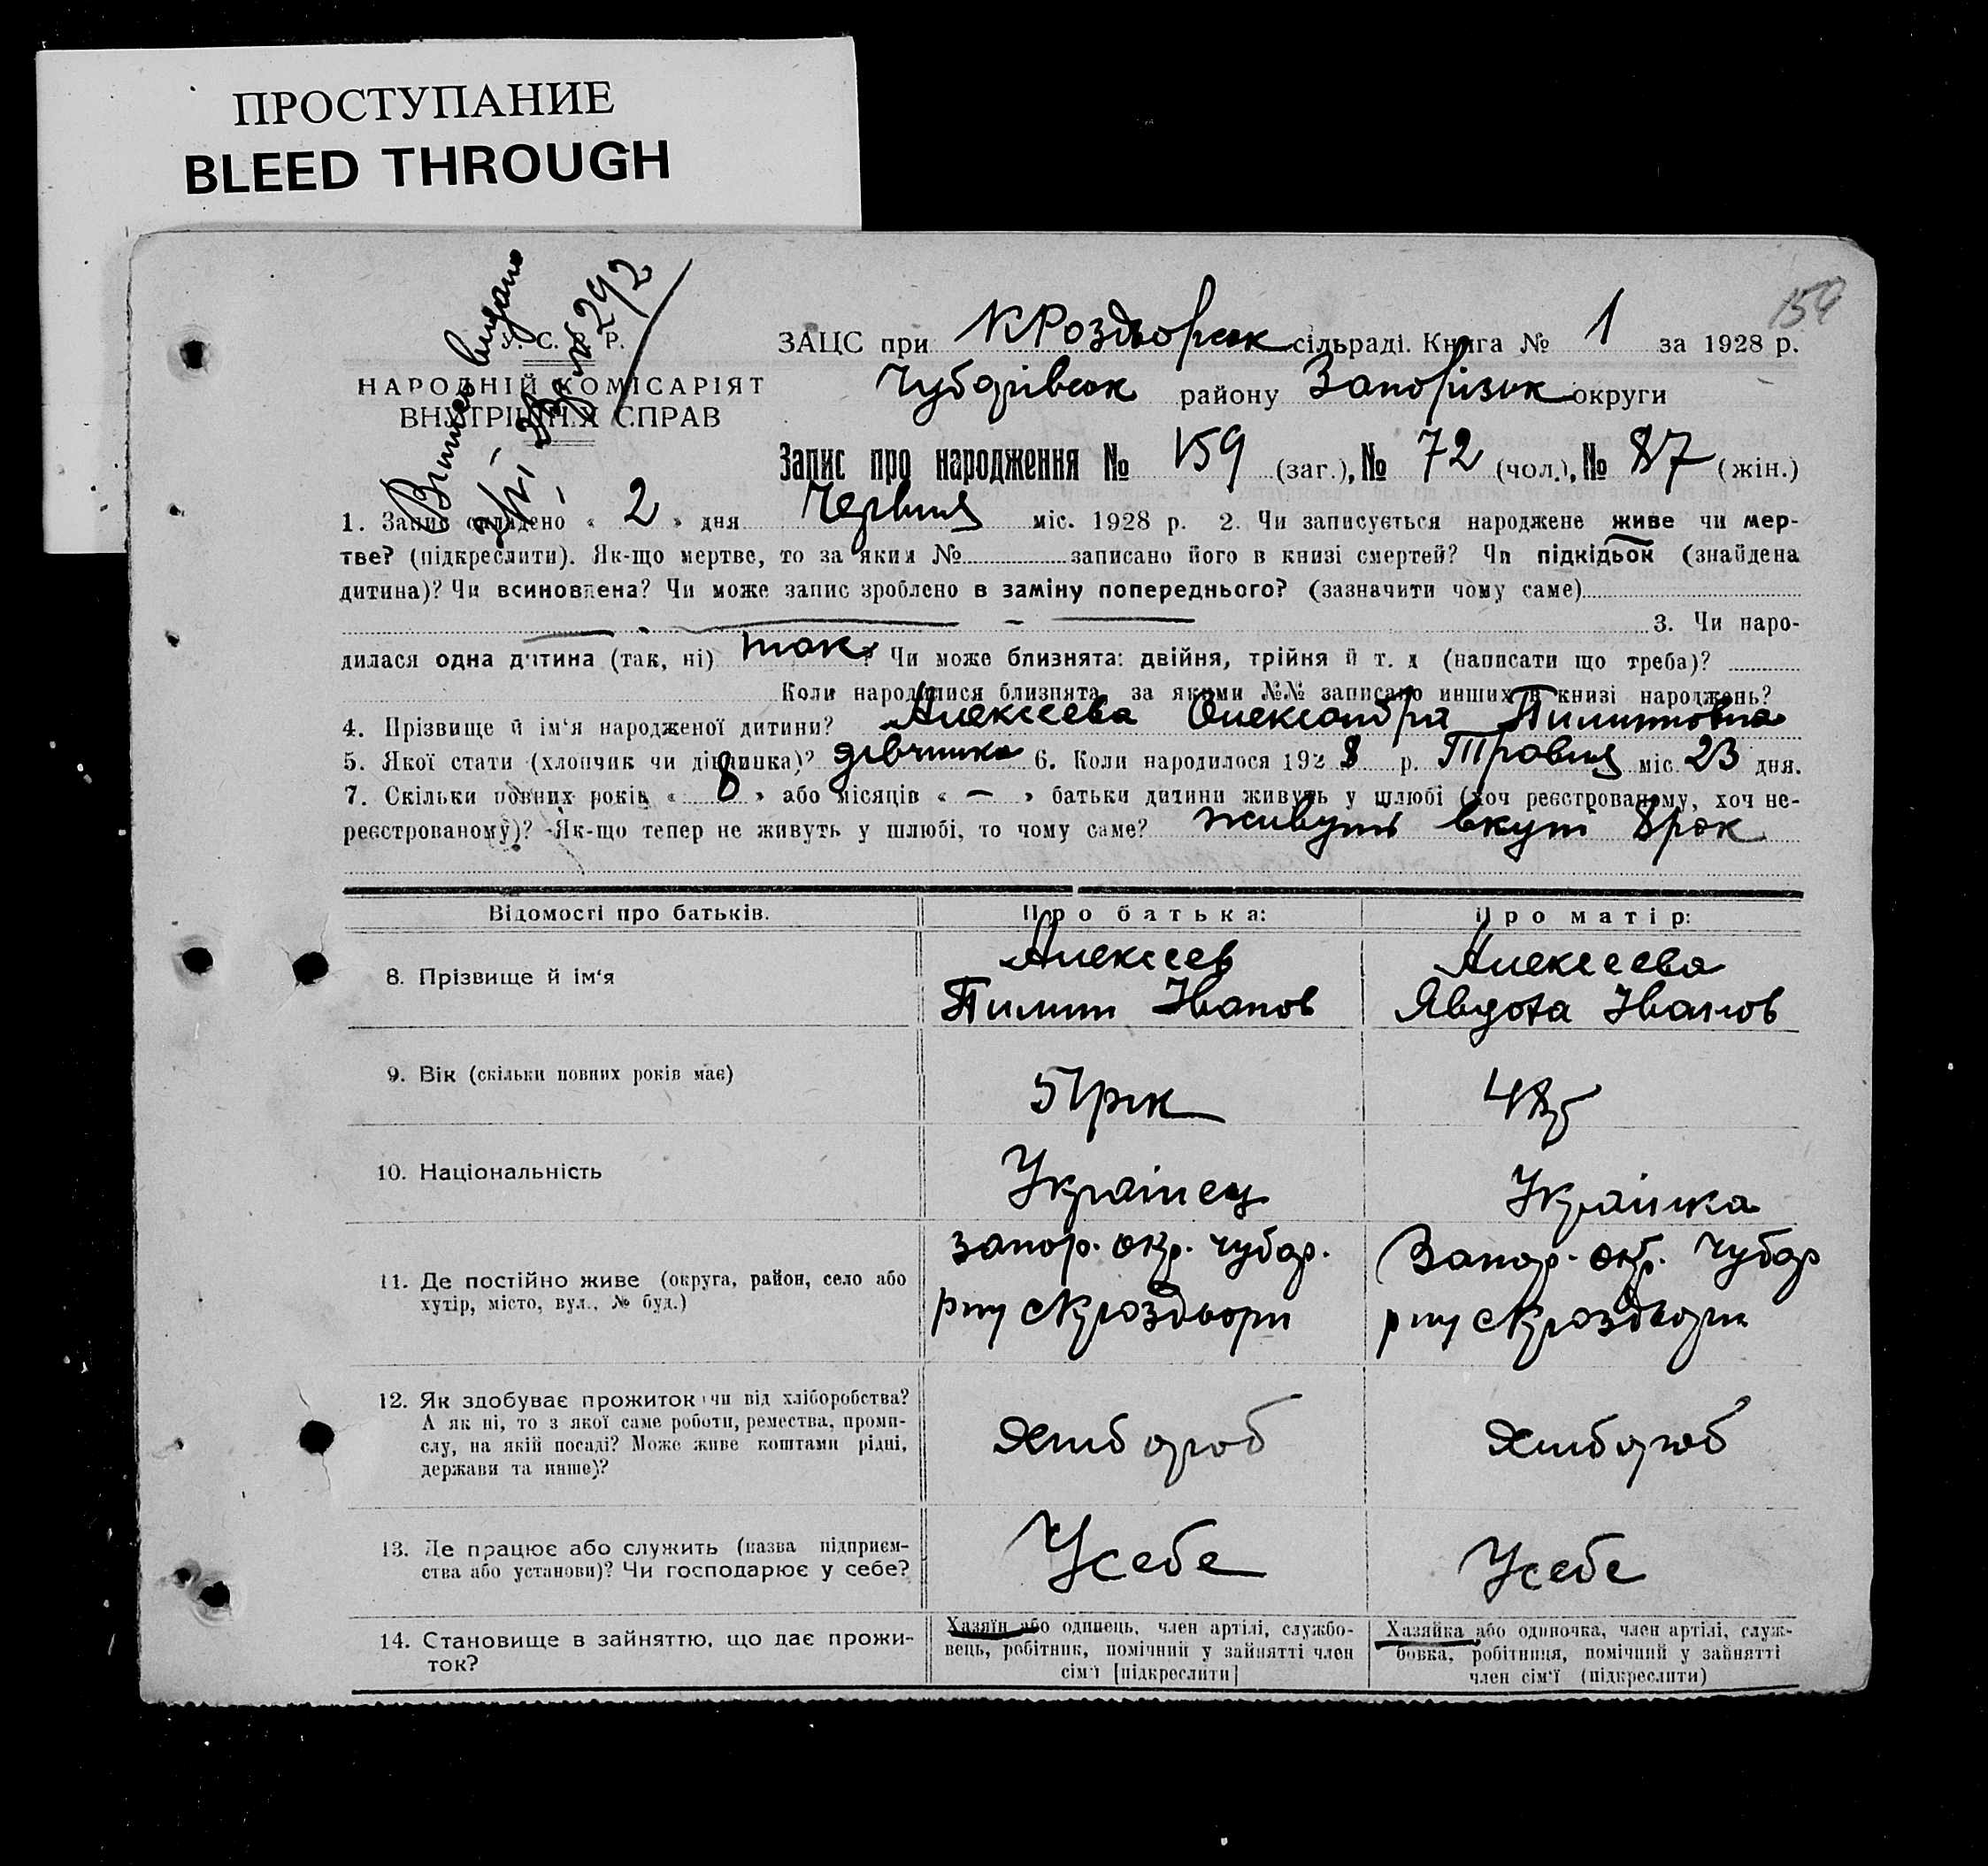 ПРОСТУПАНИЕ
BLEED THROUGH
159
Випись видано
292
У. С. Р. Р.
НАРОДНІЙ КОМІСАРІЯТ
ВНУТРІШНІХ СПРАВ
ЗАЦС при КРоздорськ сільраді. Книга № 1 за 1928 р.
Чубарівськ району Запорізьк округи
Запис про народження № 159 (заг.), № 72 (чол.), № 87 (жін.)
1. Запис складено « 2 » дня Червня міс. 1928 р. 2. Чи записується народжене живе чи мер-
тве? (підкреслити). Як-що мертве, то за яким № записано його в книзі смертей? Чи підкідьок (знайдена
дитина)? Чи всиновлена? Чи може запис зроблено в заміну попереднього? (зазначити чому саме)
3. Чи наро-
дилася одна дитина (так, ні) так? Чи може близнята: двійня, трійня й т. д (написати що треба)?
Коли народилися близнята, за якими №№ записано инших в книзі народжень?
4. Прізвище й ім'я народженої дитини? Алексеева Олександра Пилиповна
5. Якої стати (хлопчик чи дівчинка)? дівчинка 6. Коли народилося 1928 р. Травня міс. 23 дня.
7. Скільки повних років « 8 » або місяців « — » батьки дитини живуть у шлюбі (хоч реєстрованому, хоч не-
реєстрованому)? Як-що тепер не живуть у шлюбі, то чому саме? живуть вкупі 8 рок
Відомості про батьків.
Про батька:
Про матір:
8. Прізвище й ім'я
Алексеев
Пилип Іванов
Алексеева
Явдоха Іванов
9. Вік (скільки повних років має)
51 рік
10. Національність
Українец
Українка
11. Де постійно живе (округа, район, село або
хутір, місто, вул., № буд.)
запор. окр. чубар.
рну с Кроздори
Запор. окр. Чубар
рну с Кроздори
12. Як здобуває прожиток чи від хліборобства?
А як ні, то з якої саме роботи, ремества, проми-
слу, на якій посаді? Може живе коштами рідні,
держави та инше)?
Хлібороб
Хлібороб
13. Де працює або служить (назва підприєм-
ства або установи)? Чи господарює у себе?
У себе
У себе
14. Становище в зайняттю, що дає прожи-
ток?
Хазяїн або одинець, член артілі, службо-
вець, робітник, помічний у зайнятті член
сім'ї [підкреслити]
Хазяйка або одиночка, член артілі, служ-
бовка, робітниця, помічний у зайнятті
член сім'ї (підкреслити)